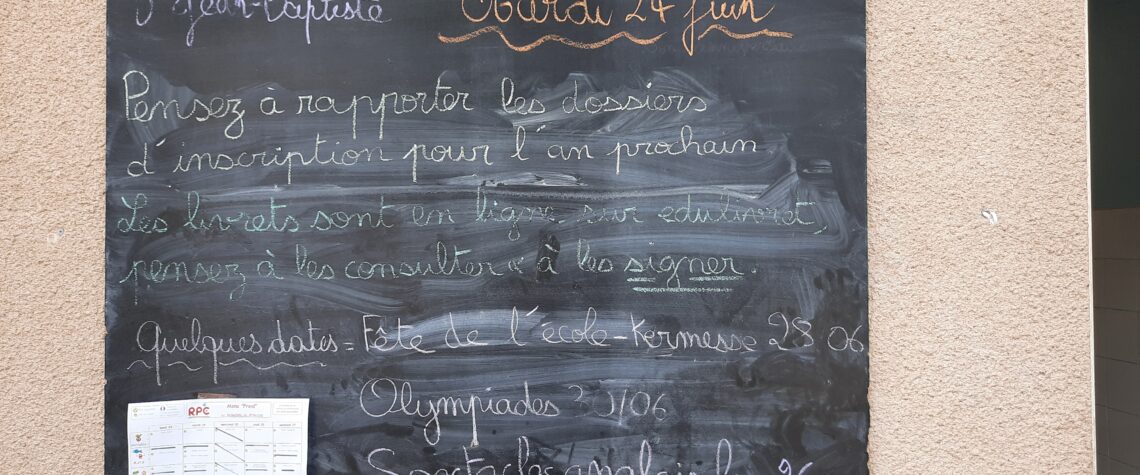 St Jean-Baptiste
Mardi 24 Juin
Pensez à rapporter les dossiers
d'inscription pour l'an prochain
Les livrets sont en ligne sur edulivret,
pensez à les consulter & à les signer.
Quelques dates = Fête de l'école - Kermesse 28 06
Olympiades 30/06
RPC
Spectacles anglais